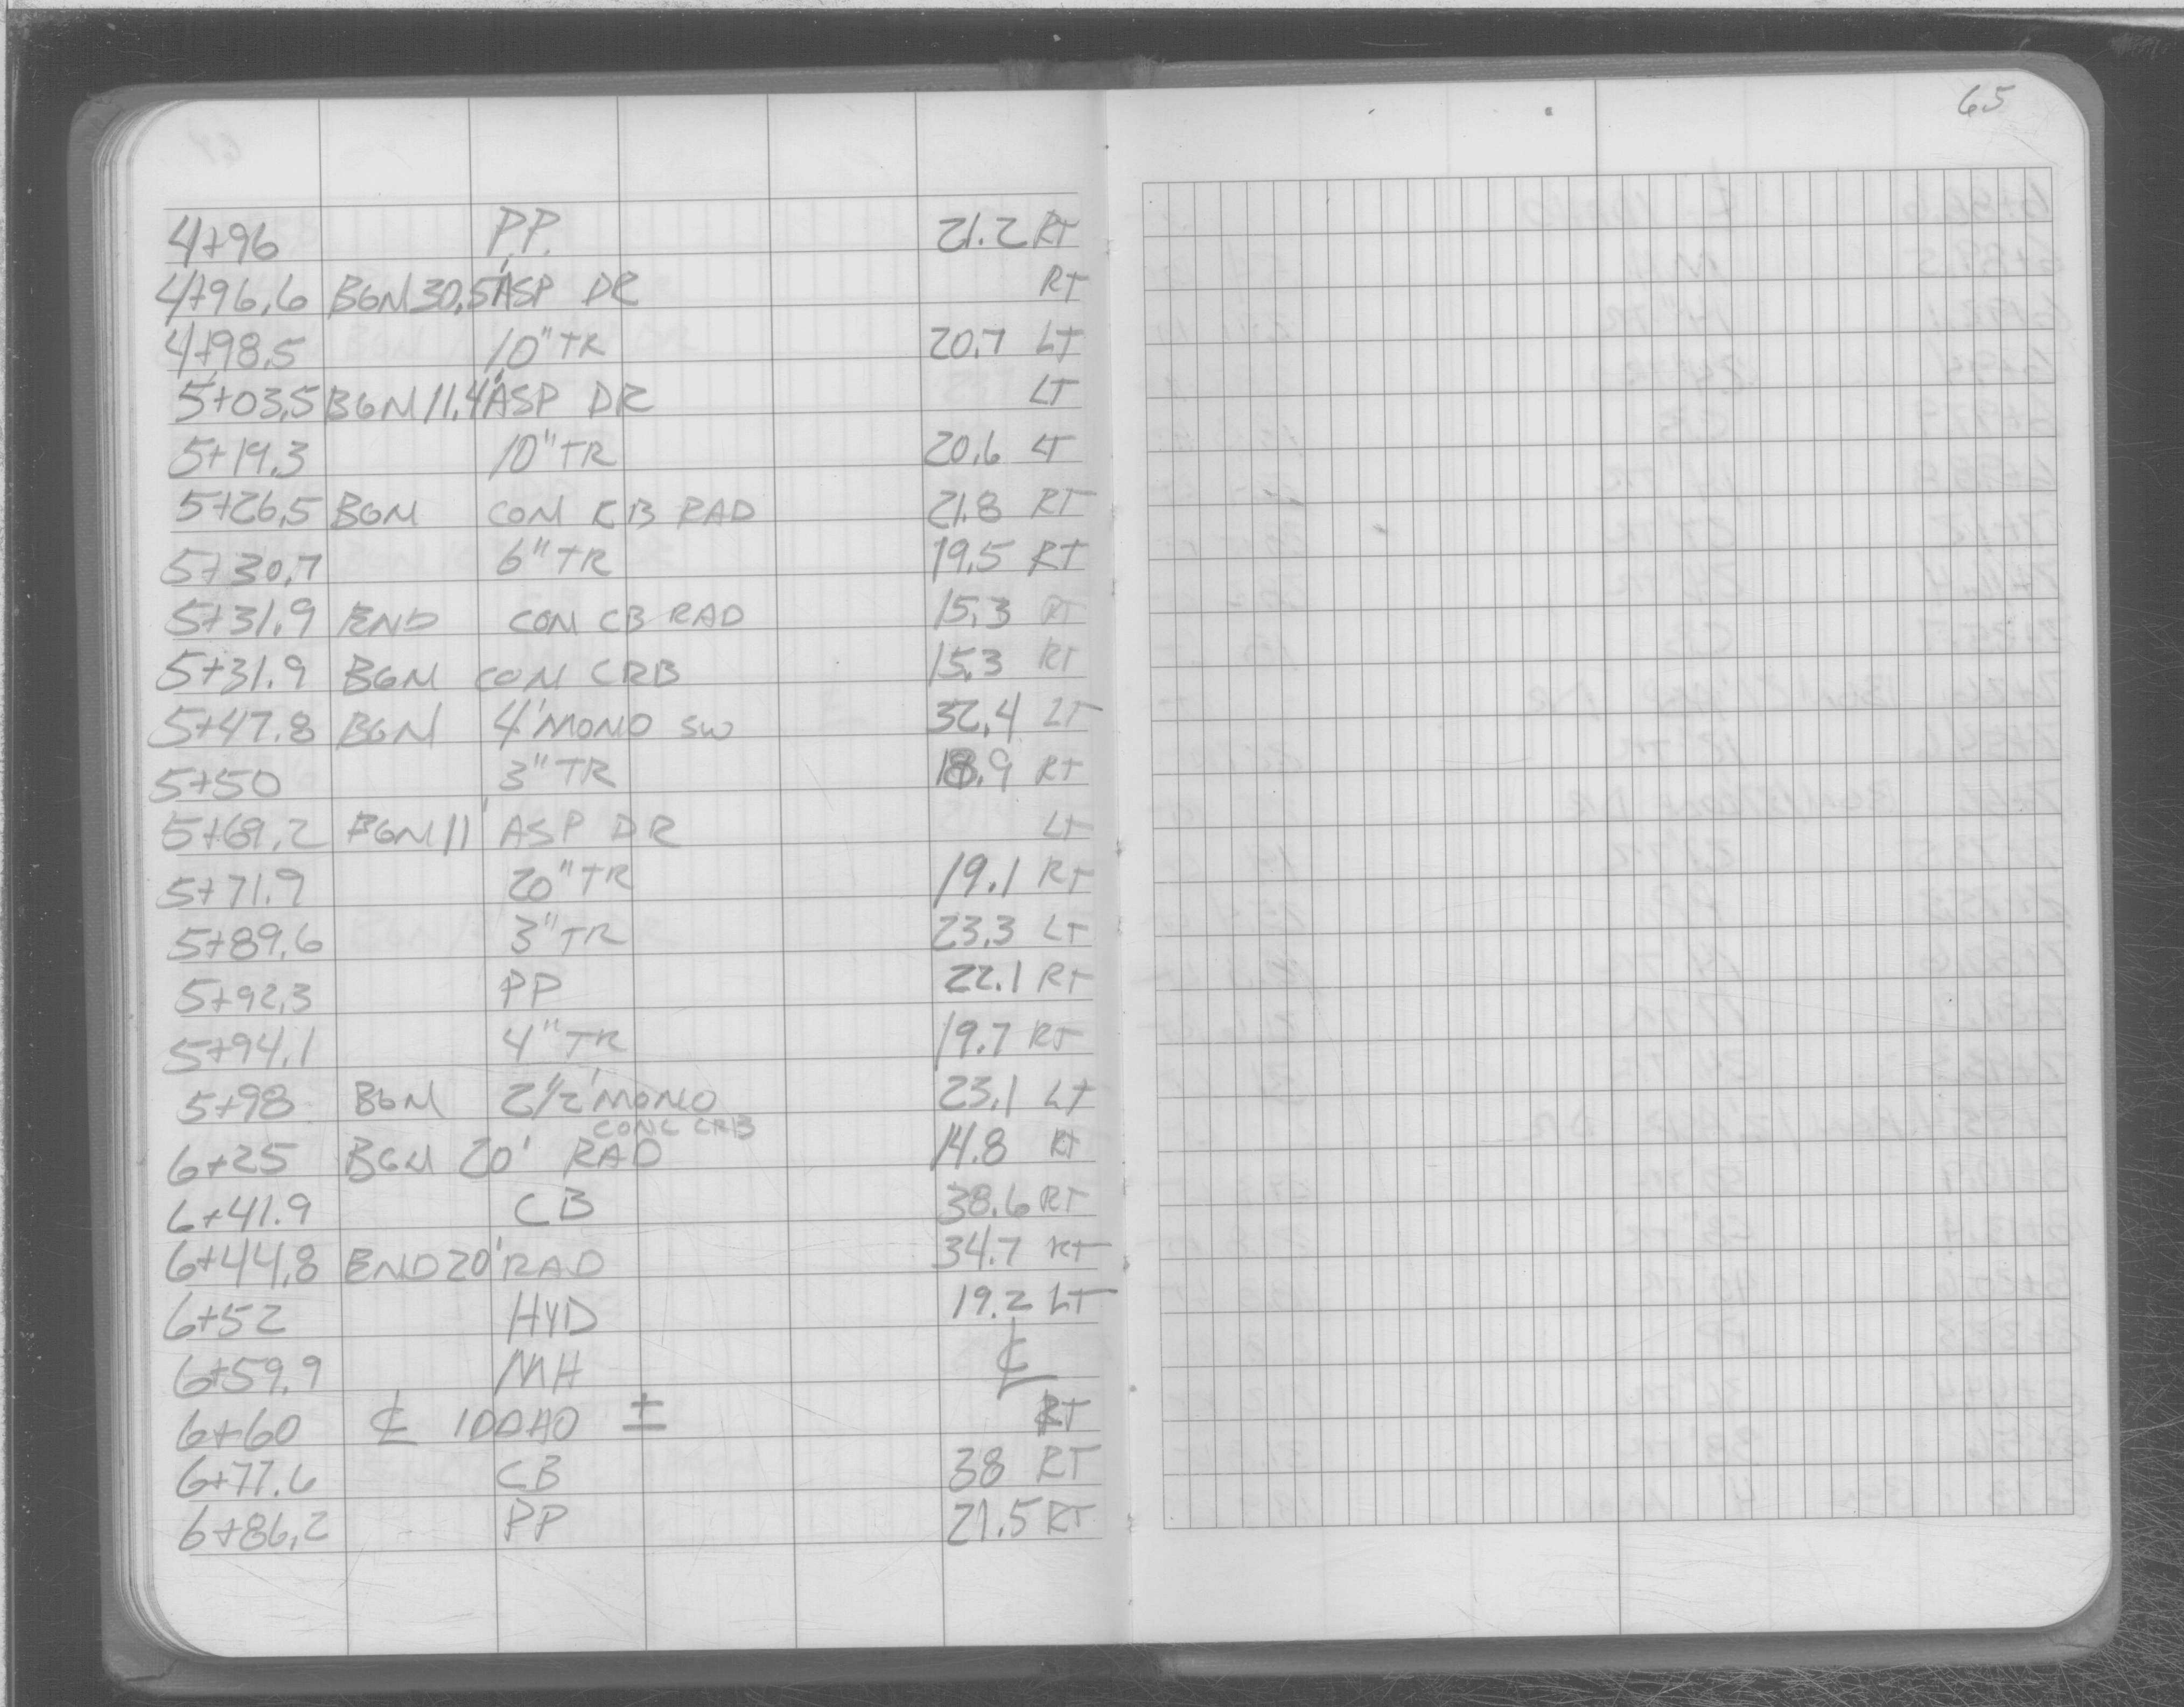 65
4+96 P.P. 21.2 RT
4+96.6 BGN 30.5' ASP DR RT
4+98.5 10" TR 20.7 LT
5+03.5 BGN 11.4' ASP DR LT
5+19.3 10" TR 20.6 LT
5+26.5 BGN CON CB RAD 21.8 RT
5+30.7 6" TR 19.5 RT
5+31.9 END CON CB RAD 15.3 RT
5+31.9 BGN CON CRB 15.3 RT
5+47.8 BGN 4' MONO SW 32.4 LT
5+50 3" TR 18.9 RT
5+69.2 BGN 11' ASP DR LT
5+71.9 20" TR 19.1 RT
5+89.6 3" TR 23.3 LT
5+92.3 PP 22.1 RT
5+94.1 4" TR 19.7 RT
5+98 BGN 2 1/2' MONO 23.1 LT
CONC CRB
6+25 BGN 20' RAD 14.8 RT
6+41.9 CB 38.6 RT
6+44.8 END 20' RAD 34.7 RT
6+52 HYD 19.2 LT
6+59.9 MH ℄
6+60 ℄ IDAHO ± RT
6+77.6 CB 38 RT
6+86.2 PP 21.5 RT